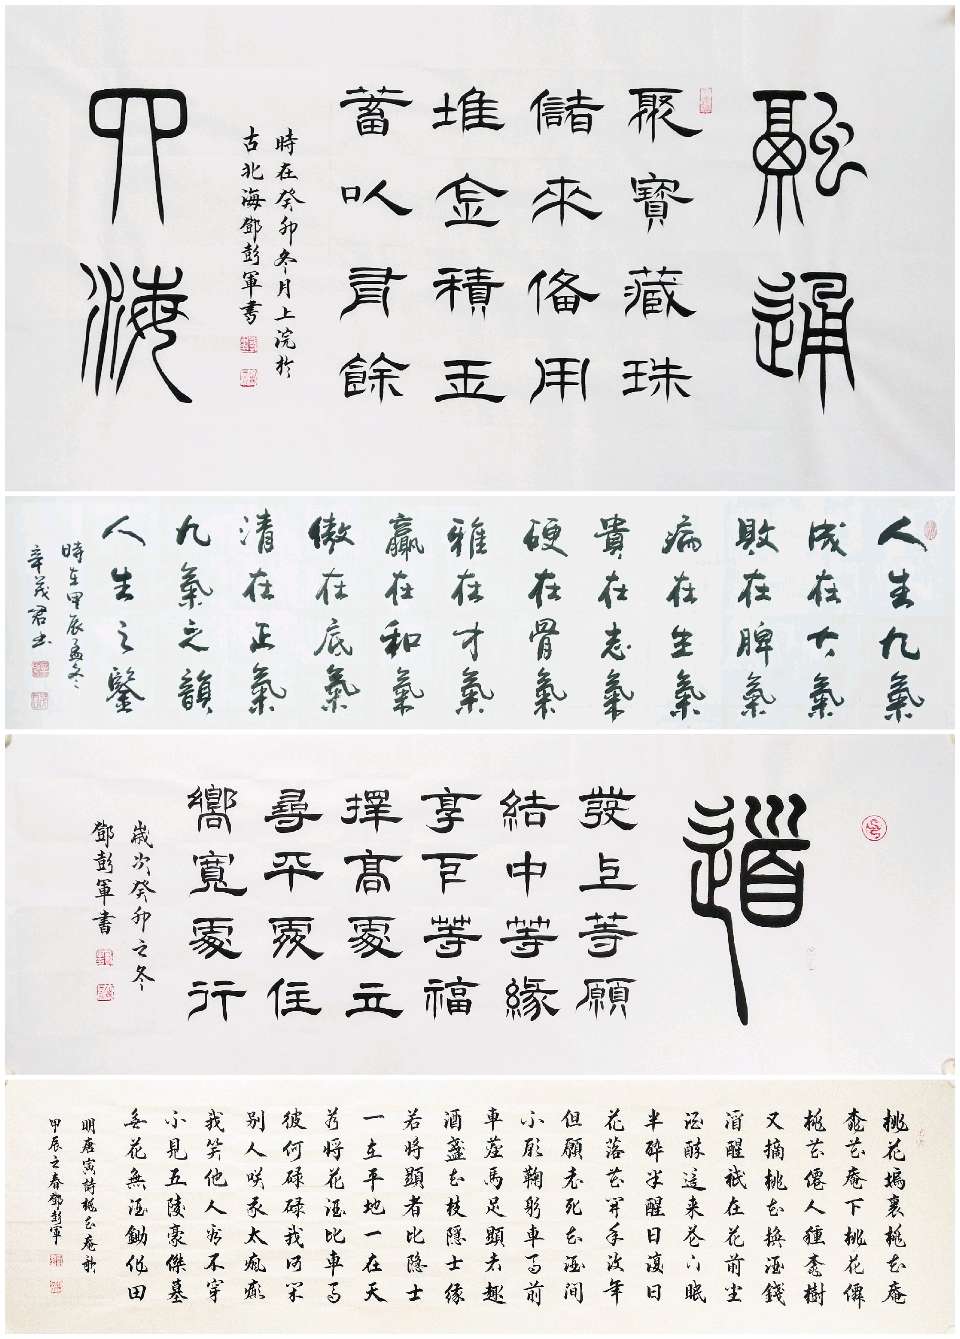 融通
聚寶藏珠
儲來備用
堆金積玉
蓄以有餘
時在癸卯冬月上浣於
古北海鄧彭軍書
四海
人生九氣
成在大氣
敗在脾氣
病在生氣
貴在志氣
硬在骨氣
雅在才氣
贏在和氣
傲在底氣
清在正氣
九氣之韻
人生之鑒
時在甲辰孟冬
辛茂君书
道
發上等願
結中等緣
享下等福
擇高處立
尋平處住
嚮寬處行
歲次癸卯之冬
鄧彭軍書
桃花塢裏桃花庵
桃花庵下桃花僊
桃花僊人種桃樹
又摘桃花換酒錢
酒醒祇在花前坐
酒醉這来花下眠
半醉半醒日復日
花落花開年復年
但願老死花酒間
不願鞠躬車馬前
車塵馬足顯者趣
酒盞花枝隱士緣
若將顯者比隱士
一在平地一在天
若將花酒比車馬
彼何碌碌我何閑
別人咲我太瘋癲
我笑他人看不穿
不見五陵豪傑墓
無花無酒鋤作田
明唐寅詩桃花庵歌
甲辰之春鄧彭軍